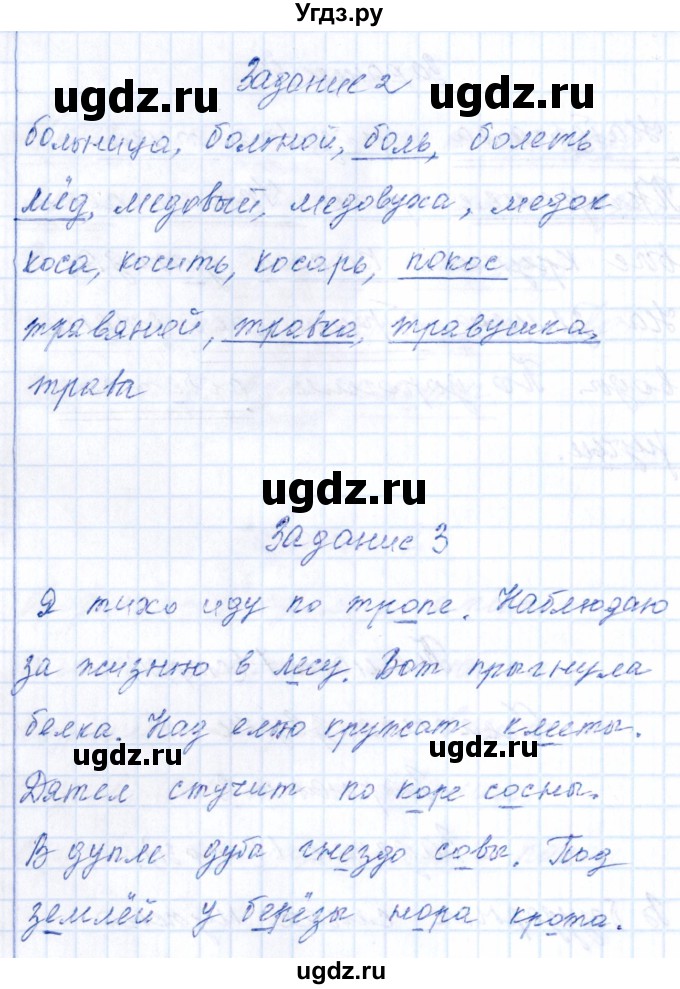 Угдз.ру
ugdz.ru ugdz.ru
Задание 2
больница, больной, боль, болеть
мёд, медовый, медовуха, медок
коса, косить, косарь, покос
ugdz.ru
травяной, травка, травушка,
трава
ugdz.ru
Задание 3
Я тихо иду по тропе. Наблюдаю
за жизнью в лесу. Вот прыгнула
белка. Над елью кружат клесты.
ugdz.ru ugdz.ru
Дятел стучит по коре сосны.
В дупле дуба гнездо совы. Под
землёй у берёзы нора крота.
ugdz.ru